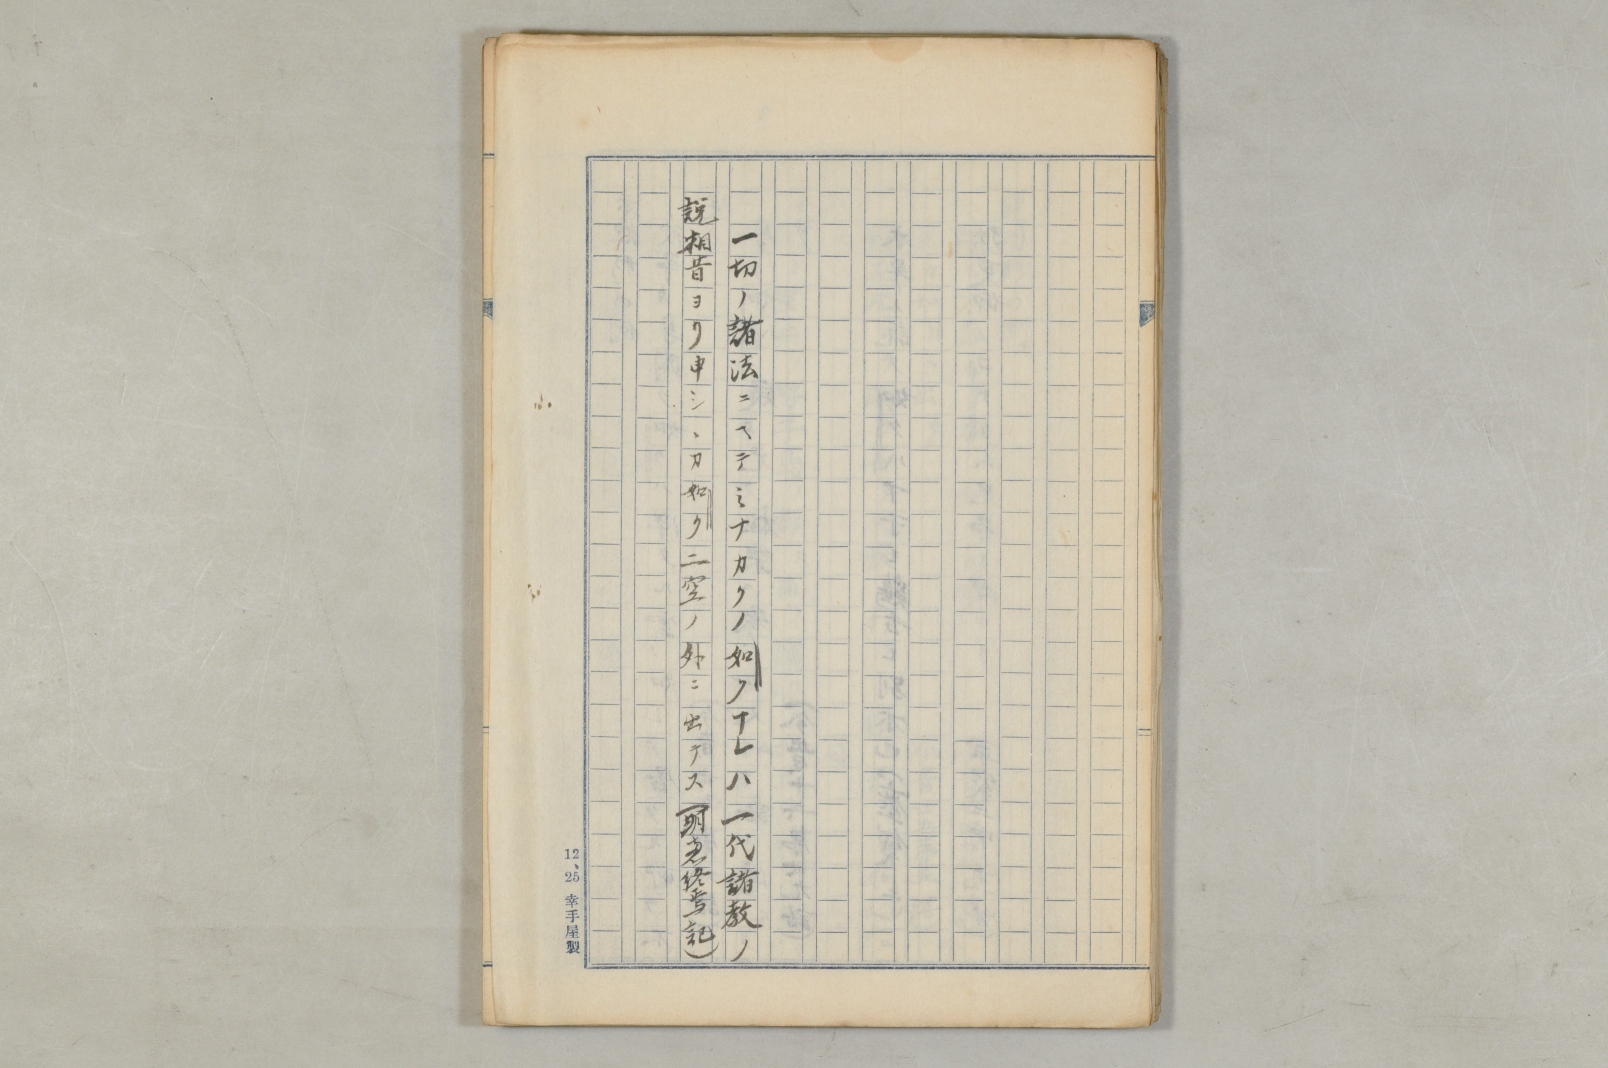 一切ノ諸法ニヲテミナカクノ如クナレハ一代諸教ノ
説相昔ヨリ申シヽカ如ク二空ノ外ニ出テス(明恵終焉記)
12、25 幸手屋製